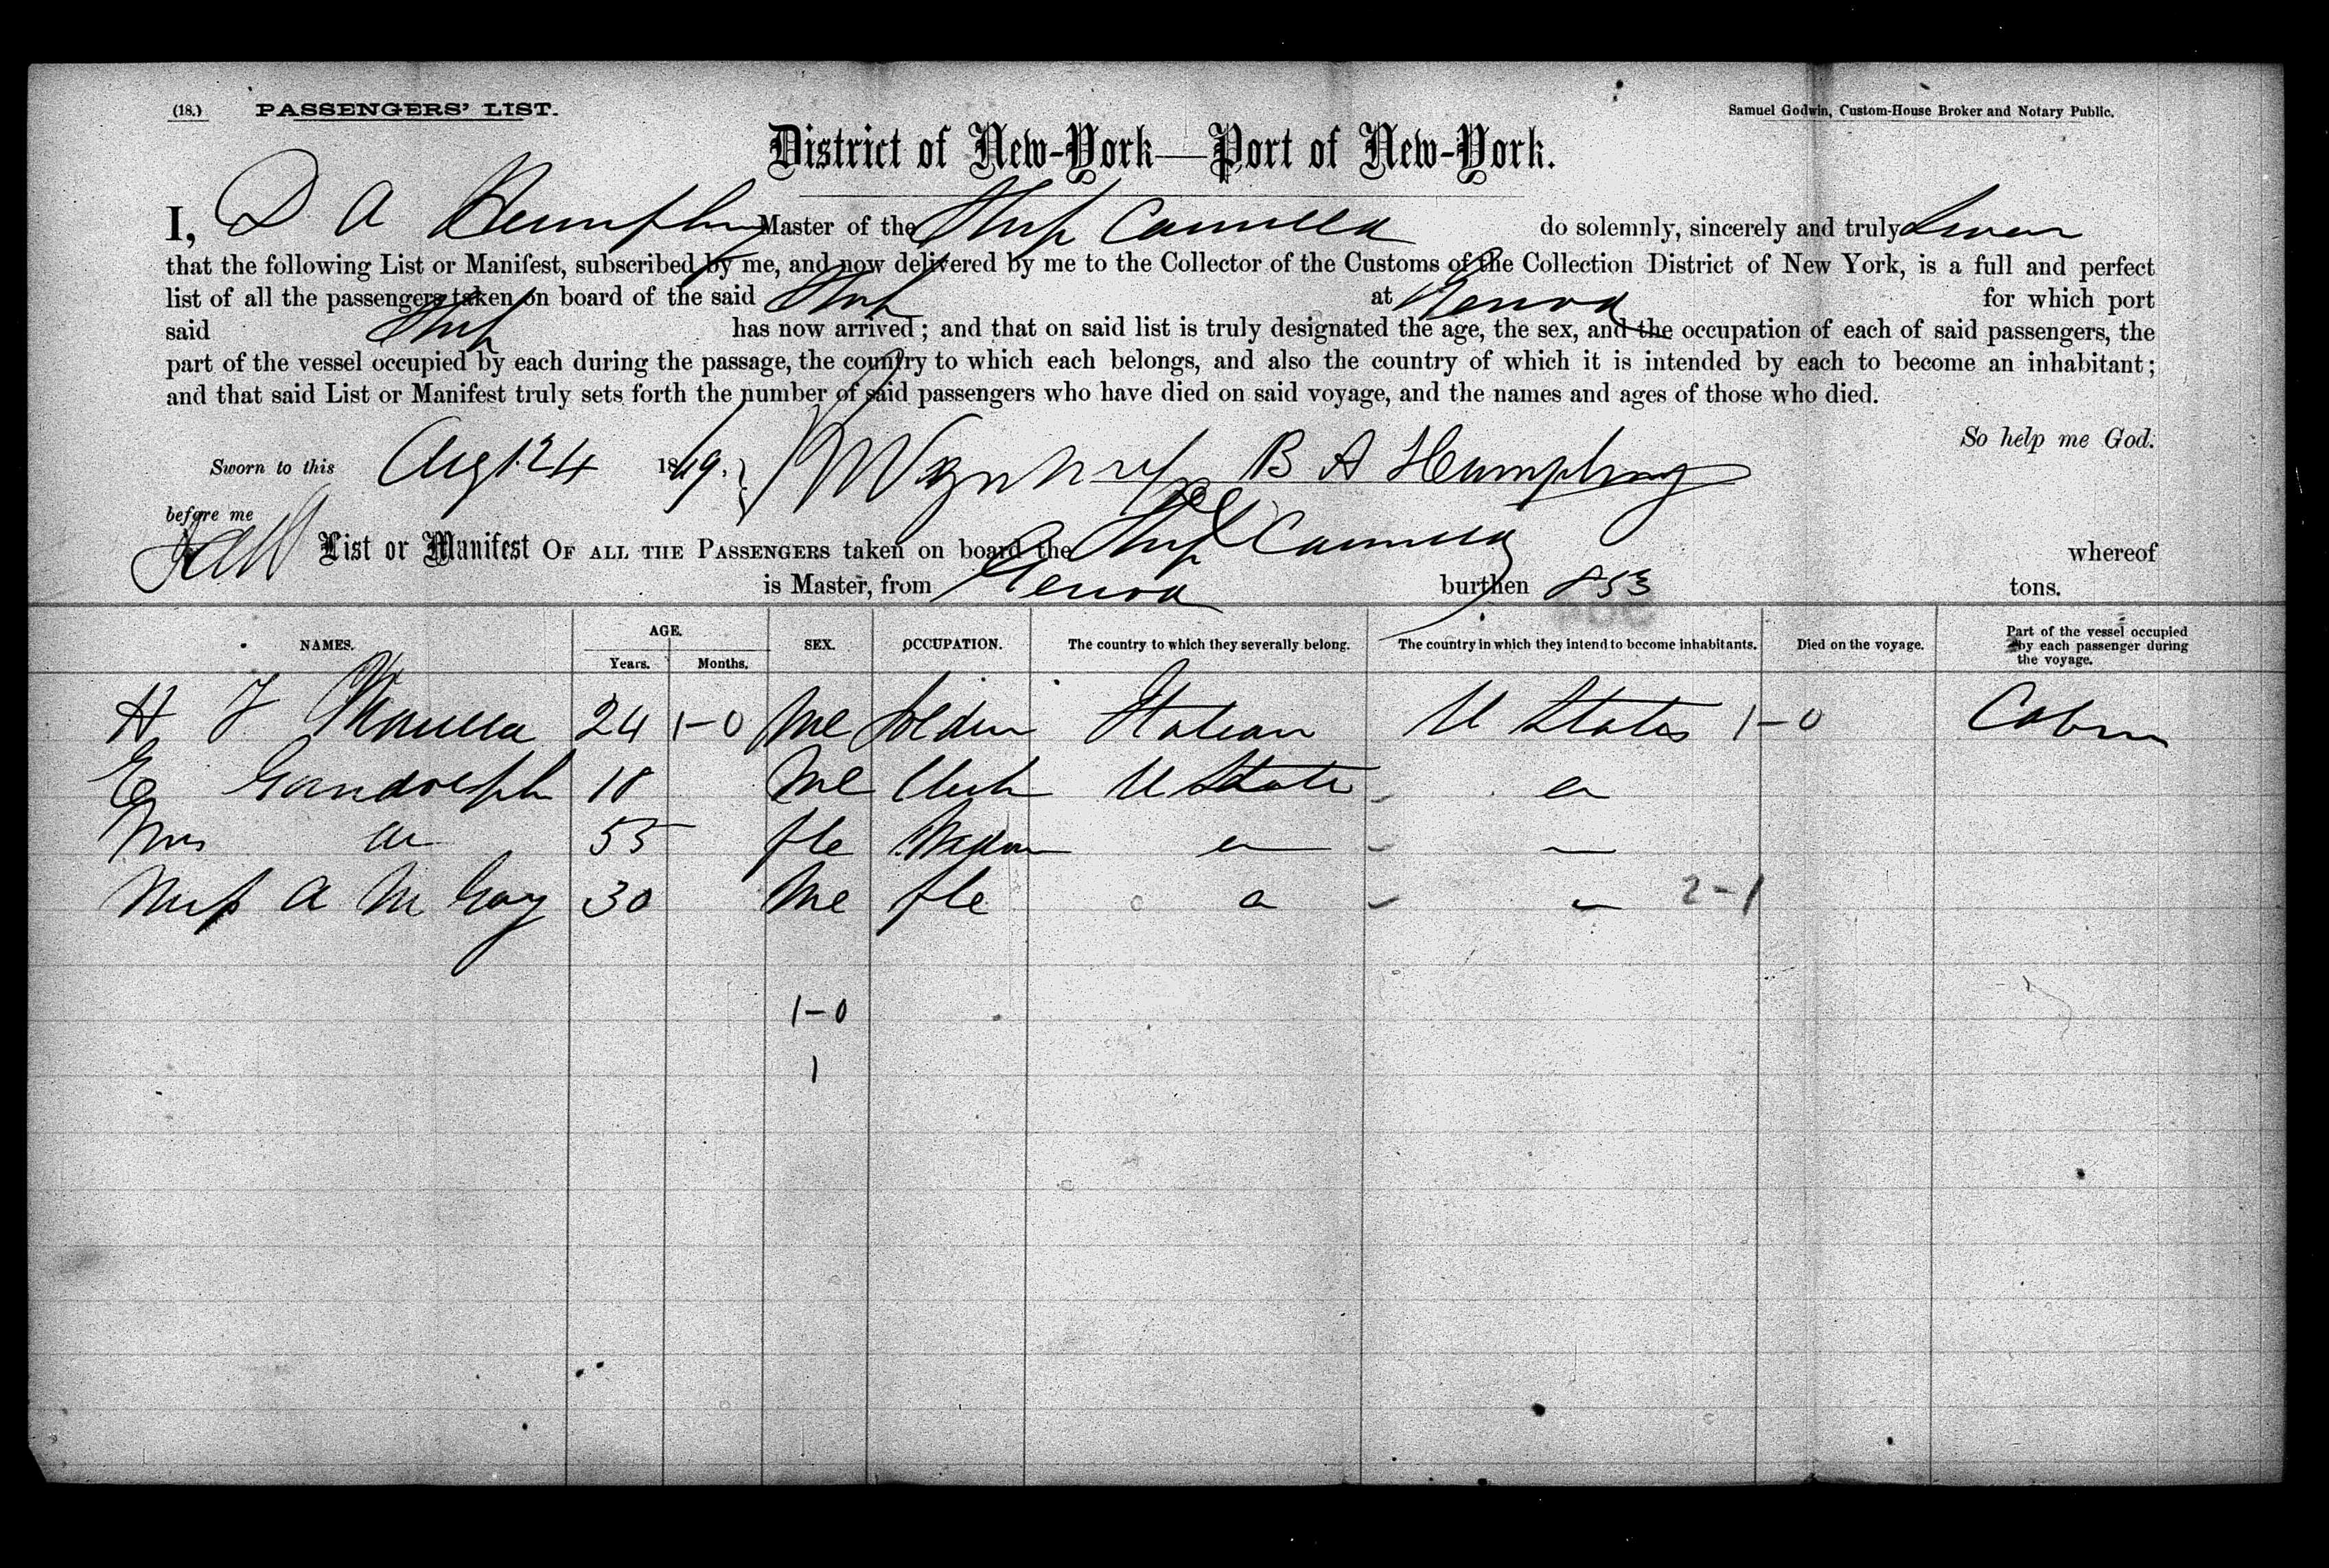 (18.) PASSENGERS' LIST. Samuel Godwin, Custom-House Broker and Notary Public.
District of New-York—Port of New-York.
I, D A Humphrey Master of the Ship Camilla do solemnly, sincerely and truly swear
that the following List or Manifest, subscribed by me, and now delivered by me to the Collector of the Customs of the Collection District of New York, is a full and perfect
list of all the passengers taken on board of the said Ship at Genoa for which port
said Ship has now arrived; and that on said list is truly designated the age, the sex, and the occupation of each of said passengers, the
part of the vessel occupied by each during the passage, the country to which each belongs, and also the country of which it is intended by each to become an inhabitant;
and that said List or Manifest truly sets forth the number of said passengers who have died on said voyage, and the names and ages of those who died.
So help me God.
Sworn to this Augt 24 1869. B A Humphrey
before me
List or Manifest OF ALL THE PASSENGERS taken on board the Ship Camilla whereof
is Master, from Genoa burthen 853 tons.
NAMES. AGE. Years. Months. SEX. OCCUPATION. The country to which they severally belong. The country in which they intend to become inhabitants. Died on the voyage. Part of the vessel occupied by each passenger during the voyage.
H F 24 1-0 Me Italian U States 1-0 Cabin
E Gandolph 18 Me Clerk U State
Mrs 55 fle
Miss A M Gay 30 Me fle 2-1
1-0
1